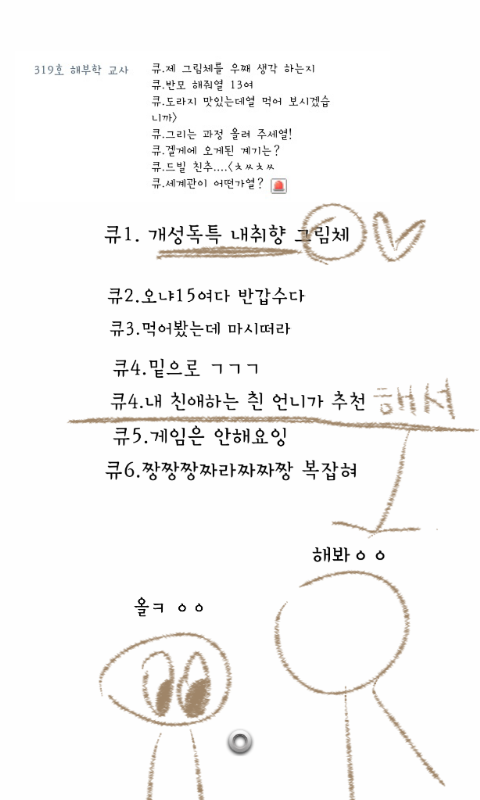 319호 해부학 교사
큐.제 그림체를 우째 생각 하는지
큐.반모 해줘열 13여
큐.도라지 맛있는데열 먹어 보시겠습
니까>
큐.그리는 과정 올려 주세열!
큐.겔게에 오게된 계기는?
큐.드빌 친추....<ㅊㅆㅊㅆ
큐.세계관이 어떤가열?
큐1. 개성독특 내취향 그림체
큐2.오냐15여다 반갑수다
큐3.먹어봤는데 마시떠라
큐4.밑으로 ㄱㄱㄱ
큐4.내 친애하는 츤 언니가 추천 해서
큐5.게임은 안해요잉
큐6.짱짱짱짜라짜짜짱 복잡혀
해봐ㅇㅇ
올ㅋ ㅇㅇ